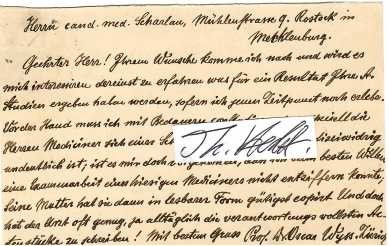 Herrn cand. med. Scharlau, Mühlenstrasse 9. Rostock in
Mecklenburg.
Geehrter Herr! Ihrem Wunsche komme ich nach und wird es
mich interessiren dereinst zu erfahren was für ein Resultat Ihre
Studien ergeben haben werden, sofern ich jenen Zeitpunct noch erlebe.
Vor der Hand muss ich mit Bedauern
Herren Mediciner sich einer
undeutlich ist; ist es mir doch besten Willen
eine Examenarbeit eines hiesigen Mediciners nicht entziffern konnte,
seine Mutter hat sie dann in lesbarer Form gütigst copirt. Und doch
hat der Arzt oft genug, ja alltäglich die verantwortungsvollsten
zu schreiben! Mit bestem Gruss Prof. Dr Oscar Wyss. Zürich